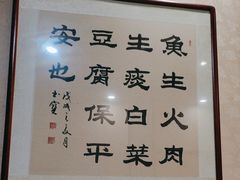 魚生火肉
生痰白菜
豆腐保平
安也
戊戌之夏月